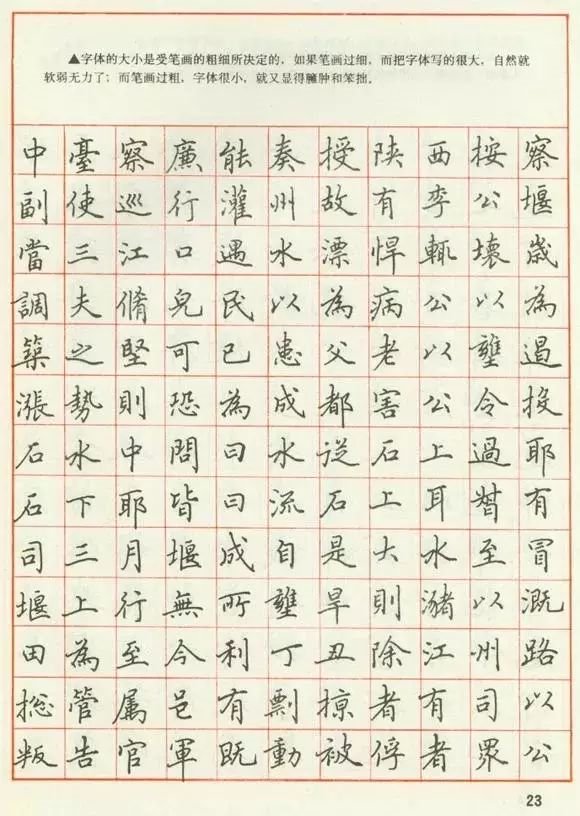 ▲字体的大小是受笔画的粗细所决定的，如果笔画过细，而把字体写的很大，自然就
软弱无力了；而笔画过粗，字体很小，就又显得臃肿和笨拙。
中臺察廉能奏授陕西桉察
副使巡行灌州故有李公堰
當三江口遇水漂悍輒壞歲
調夫脩皃民以為病公以為
築之堅可已患父老以壅遏
漲勢則恐為成都害公令投
石水中問曰水從石上過耶
石下耶皆曰流石上耳有
司三月堰成自是大水至冒
堰上行無所壅旱則瀦以溉
田為至今利丁丑除江州路
総管属邑有剽掠者有司以
叛告官軍既動被俘者眾公
23